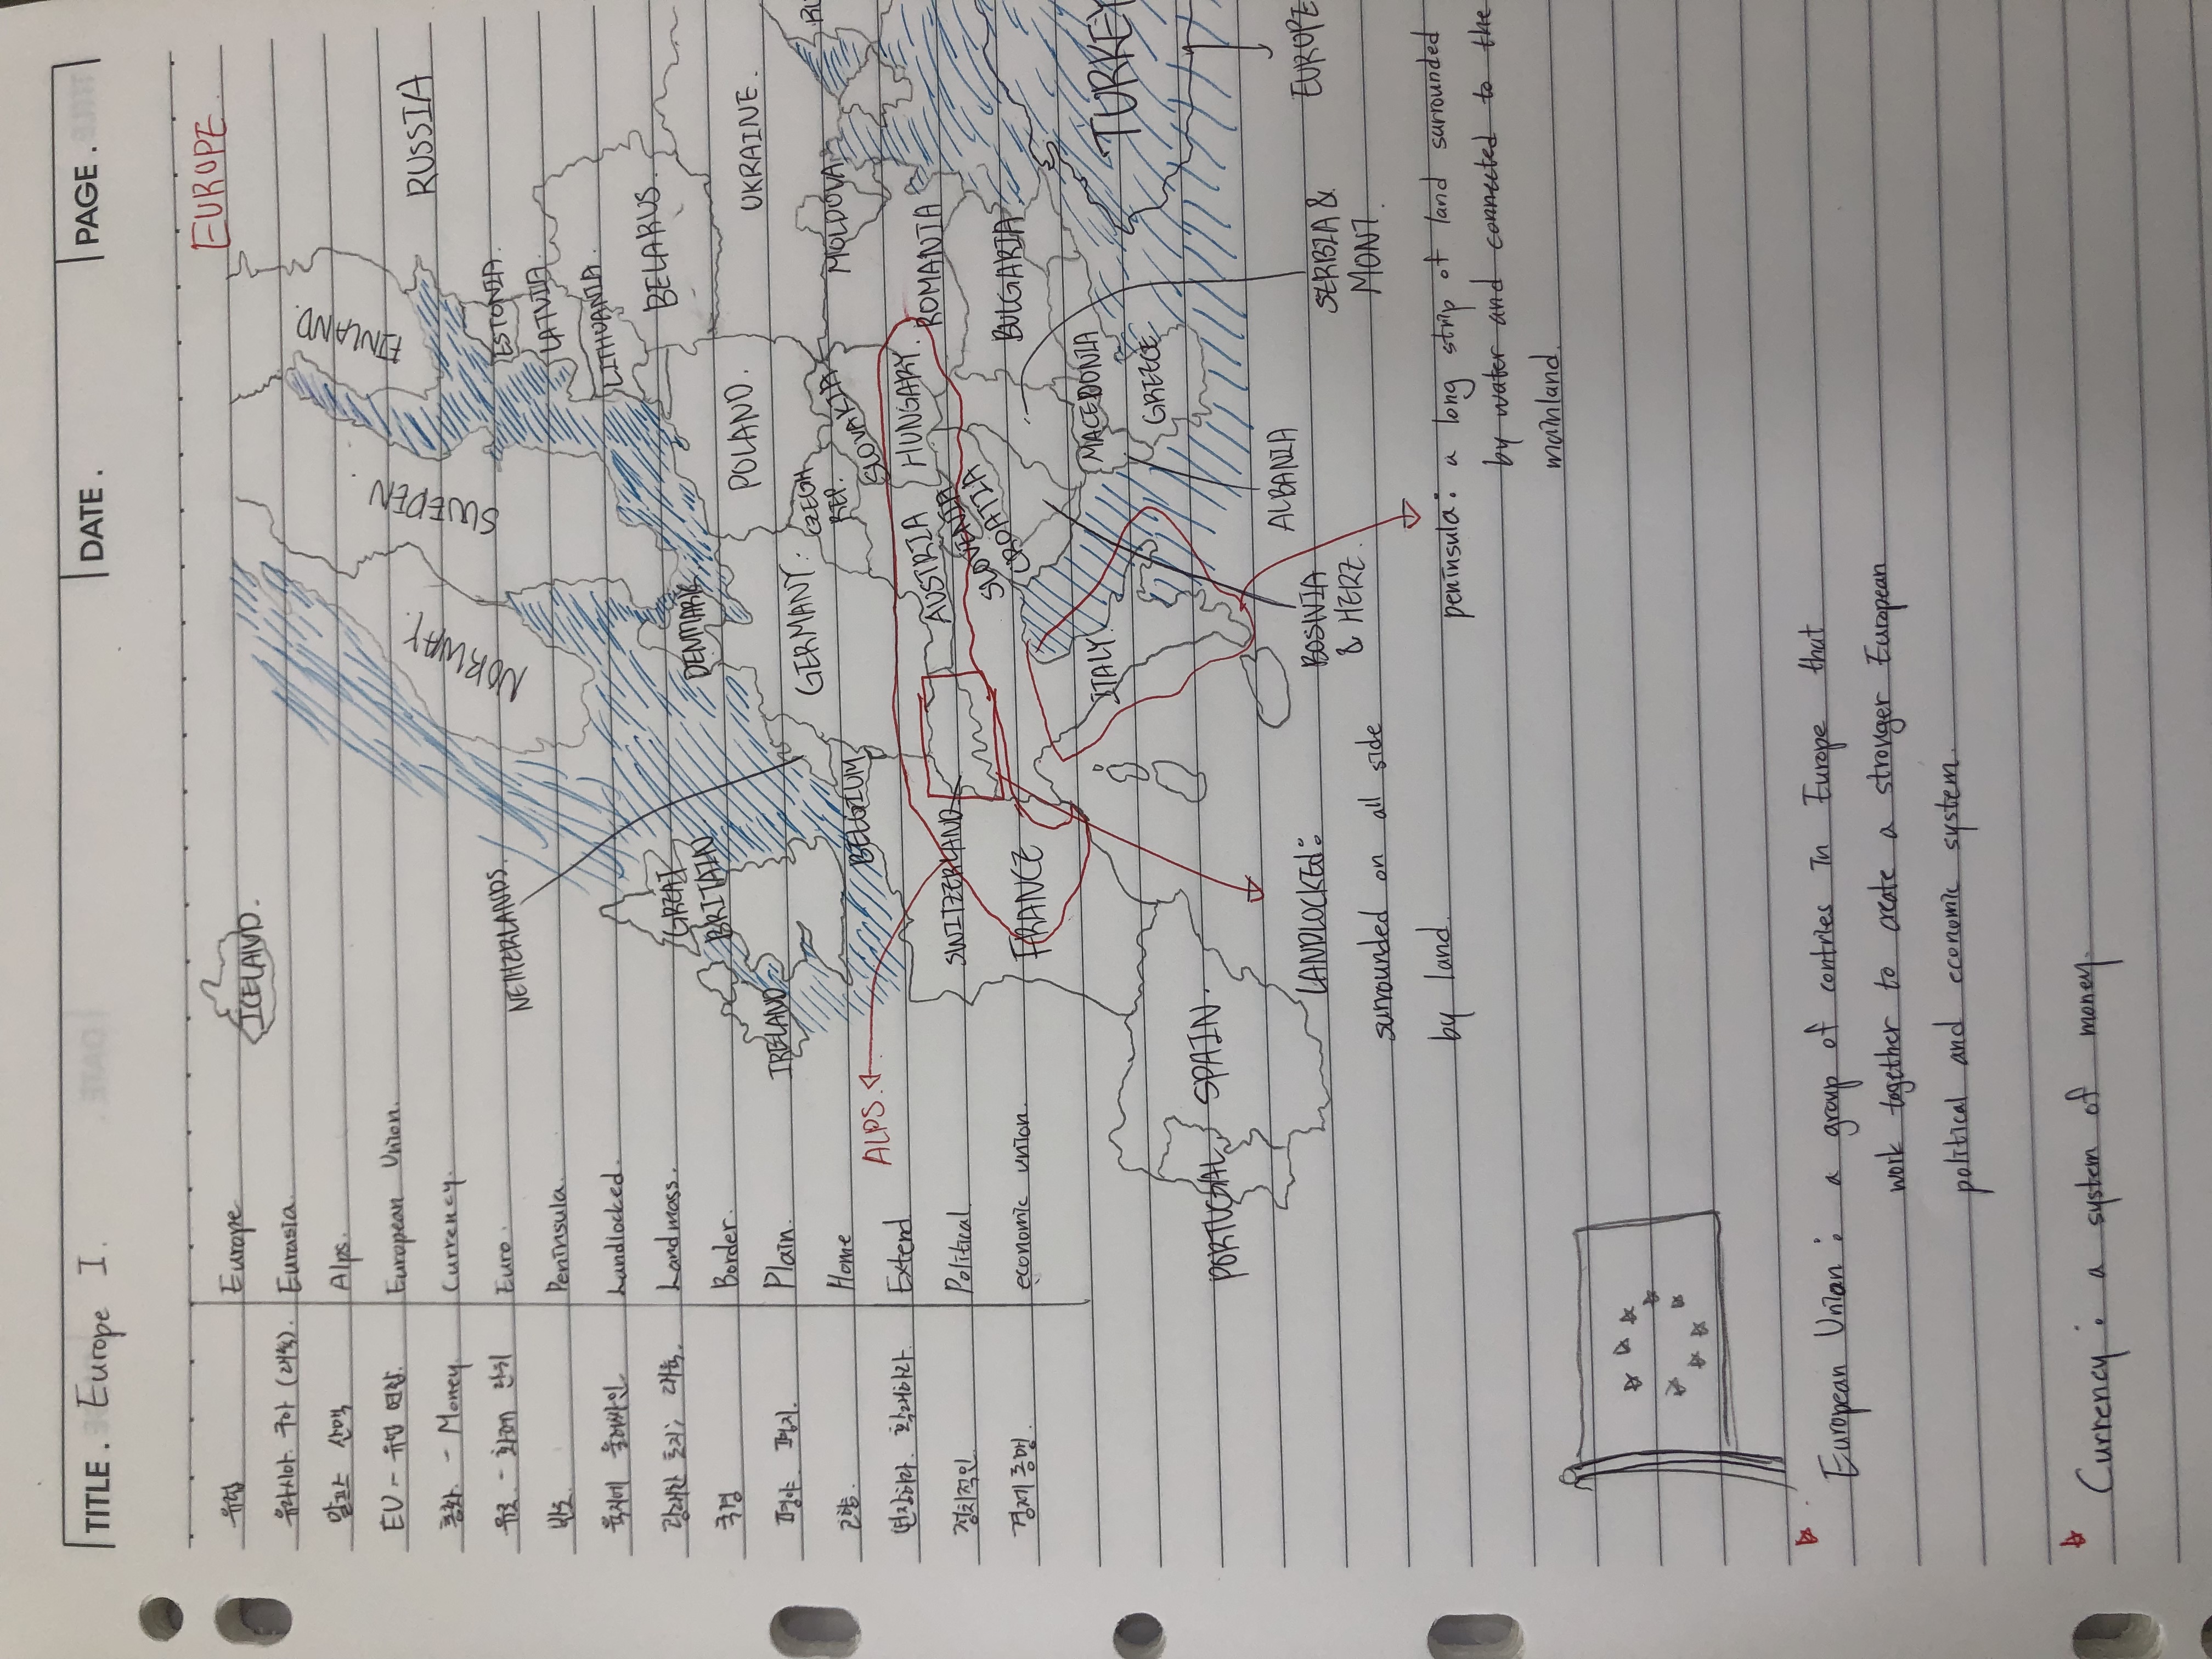 TITLE. Europe I. DATE. PAGE.
EUROPE.
유럽 Europe
유라시아. 구아 (대륙). Eurasia.
알프스 산맥 Alps.
EU - 유럽 연합. European Union.
통화. - Money Currency.
유로. - 화폐 단위 Euro.
반도. Peninsula.
육지에 둘러싸인. Landlocked.
광대한 토지; 대륙. Landmass.
국경 Border.
평야. 평지. Plain.
고향. Home
연장하다. 확대하다. Extend
정치적인 Political.
경제 동맹. economic union.
ICELAND.
NORWAY
SWEDEN
FINLAND
RUSSIA
ESTONIA.
LATVIA.
LITHUANIA.
BELARUS.
NETHERLANDS.
DENMARK
GREAT
BRITAIN
IRELAND
POLAND.
UKRAINE.
GERMANY.
BELGIUM
CZECH
REP.
SLOVAKIA
MOLDOVA
ALPS.
SWITZERLAND
AUSTRIA
HUNGARY.
ROMANIA
SLOVENIA
CROATIA
FRANCE
BULGARIA
ITALY.
MACEDONIA
GREECE
TURKEY
PORTUGAL
SPAIN.
BOSNIA
& HERZ.
ALBANIA
SERBIA &
MONT.
EUROPE
LANDLOCKED:
surrounded on all side
by land.
peninsula: a long strip of land surrounded
by water and connected to the
mainland.
European Union: a group of contries in Europe that
work together to create a stronger European
political and economic system.
Currency: a system of money.